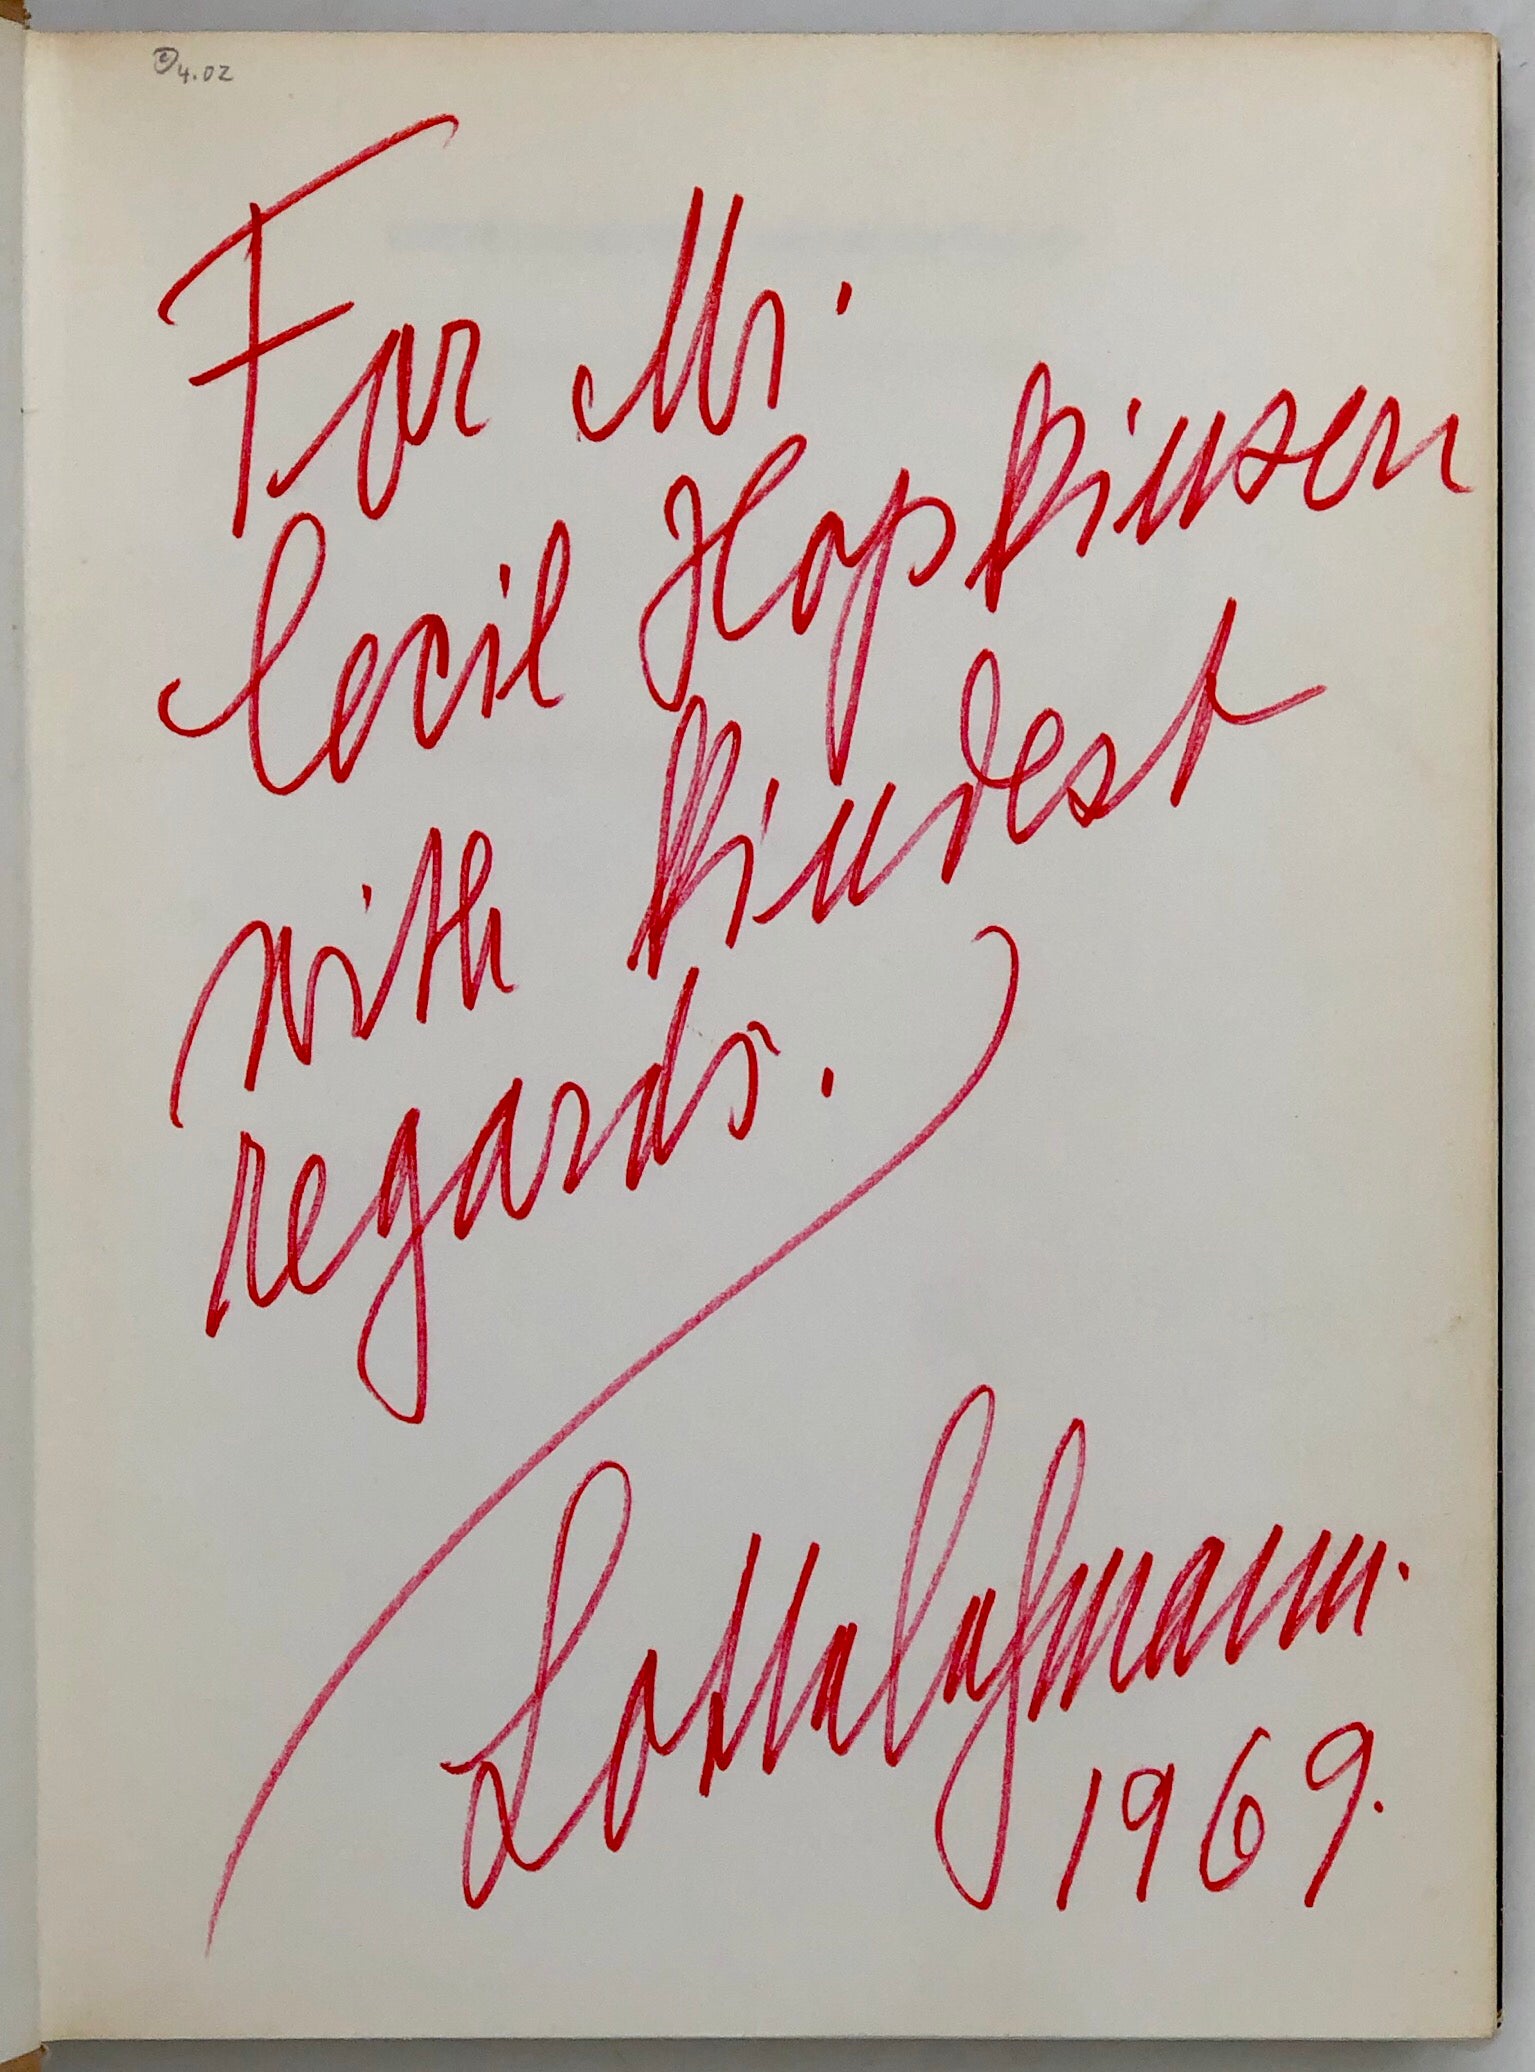 © 4.02
For Mr.
Cecil Hopkinsen
with kindest
regards.
Lotte Lehmann.
1969.